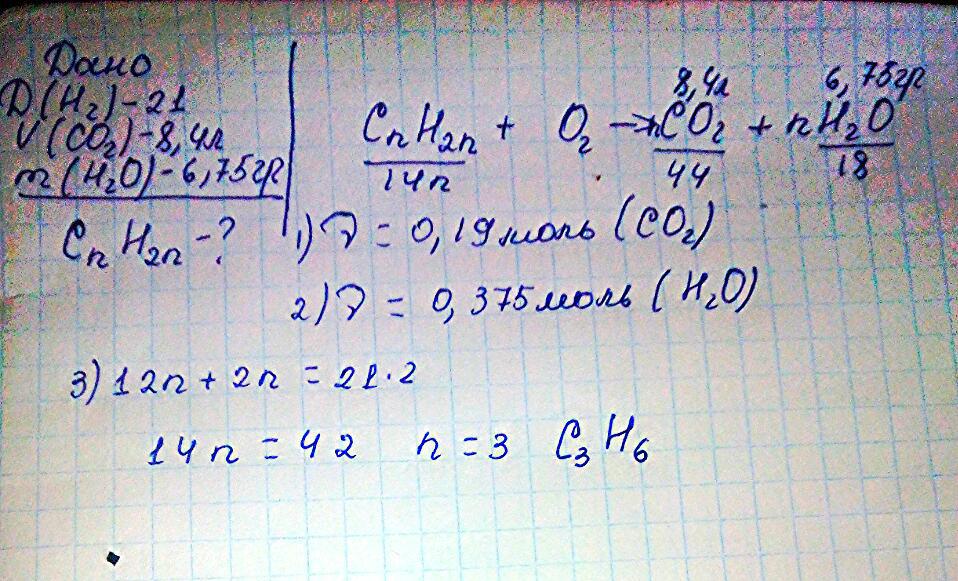 Дано
D(H₂)-21
V(CO₂)-8,4л
m(H₂O)-6,75гр
CnH2n-?
8,4л 6,75гр
CnH2n + O₂ → nCO₂ + nH₂O
14n 44 18
1) ν = 0,19моль (CO₂)
2) ν = 0,375моль (H₂O)
3) 12n + 2n = 21·2
14n = 42 n = 3 C₃H₆